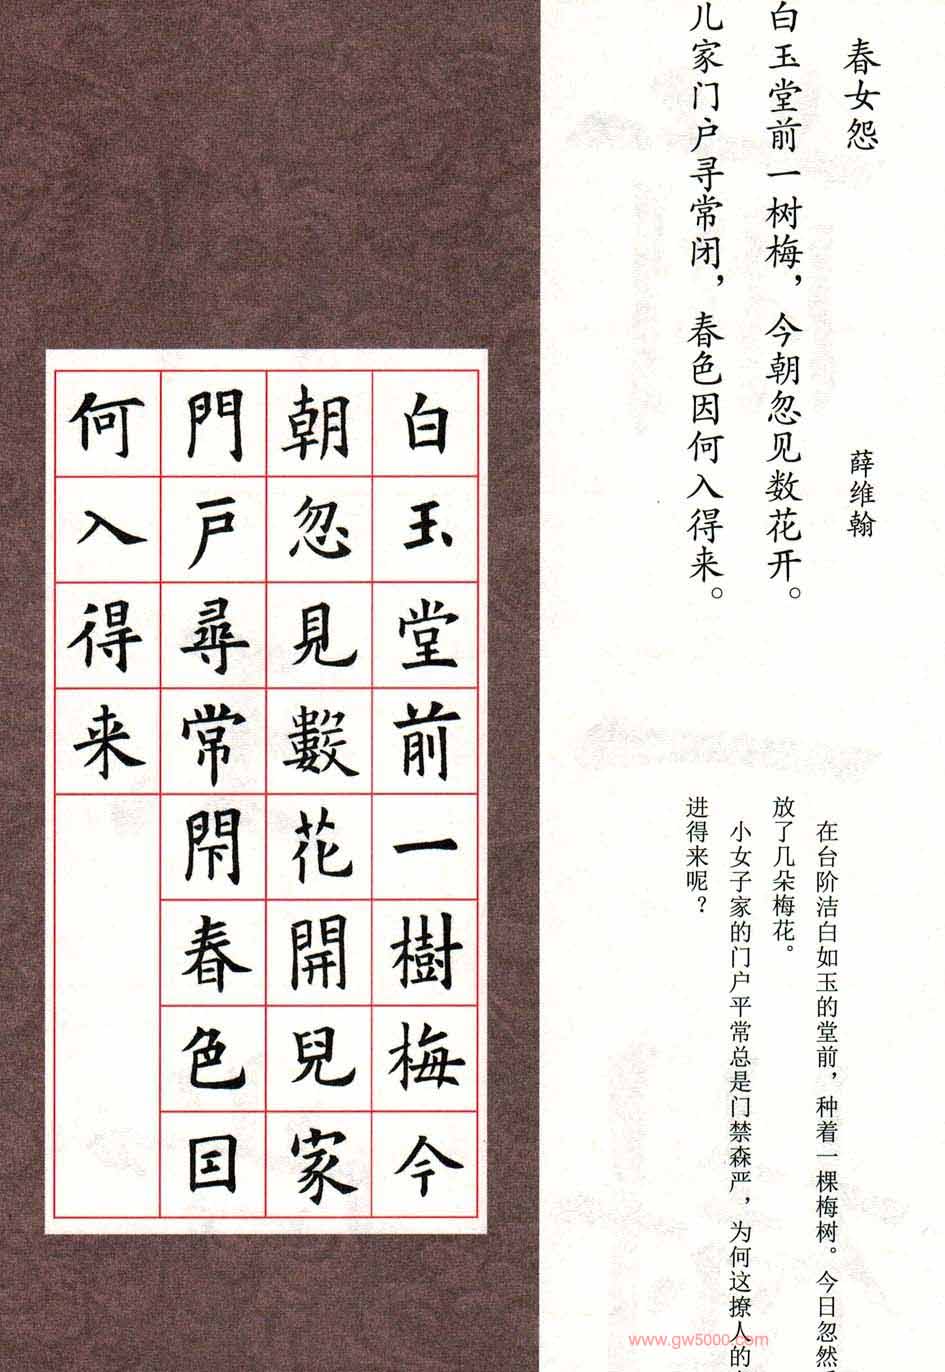 春女怨
薛维翰
白玉堂前一树梅，今朝忽见数花开。
儿家门户寻常闭，春色因何入得来。
在台阶洁白如玉的堂前，种着一棵梅树。今日忽然
放了几朵梅花。
小女子家的门户平常总是门禁森严，为何这撩人的
进得来呢？
白玉堂前一樹梅今
朝忽見數花開兒家
門戸尋常閇春色囙
何入得来
www.gw5000.com